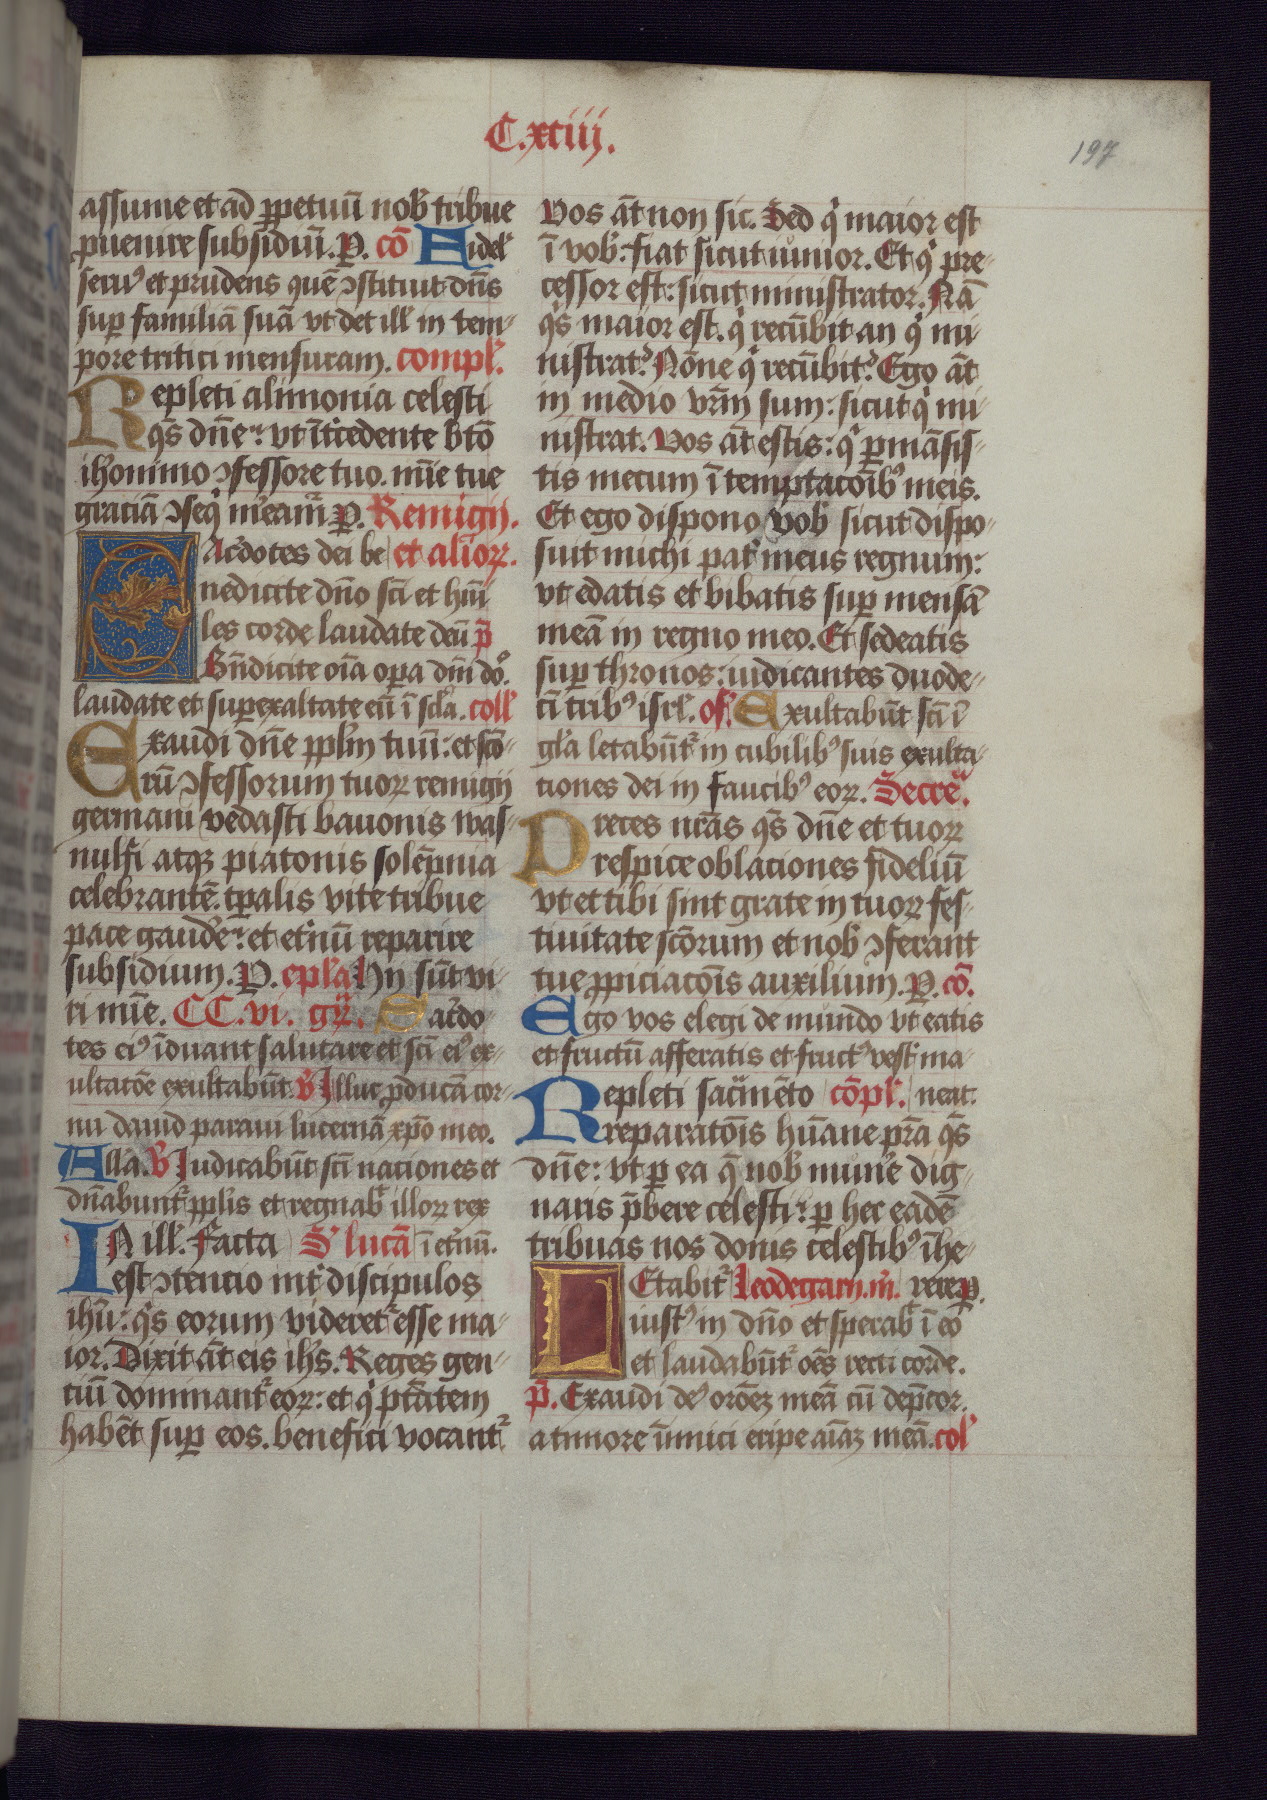 C.xciiij.
197
assume et ad ꝑpetuū nob̛ tribue
ꝓuenire subsidiū. P. cō Fidel̛
seruꝰ et prudens quē ꝯstituit dn̄s
suꝑ familiā suā vt det ill̛ in tem-
pore tritici mensuram. compl̛.
Repleti alimonia celesti
qs̄ dn̄e: vt īt̛cedente btō
ih̛onimo ꝯfessore tuo. mīe tue
gratiā ꝯseqͥ m̛eamr̄ P. Remigij.
Ac̛dotes dei be et alioꝝ.
nedicite dn̄o sc̄i et hūi
les corde laudate deū p̄
Bn̄dicite oīa oꝑa dn̄i dn̄o.
laudate et suꝑexaltate eū ī sc̄la. coll̛
Exaudi dn̄e ppl̄m tuū: et sc̄o-
rū ꝯfessorum tuoꝝ remigij
germani vedasti bauonis was-
nulfi atqꝫ piatonis solēpnia
celebrantē. tꝑalis vite tribue
pace gaude̛: et et̛nū reparire
subsidium. P. epl̄a Hij sūt vi-
ri mīe. CC.vi. gͬ. Sac̛do-
tes eiꝰ īduant salutare et sc̄i eiꝰ ex-
ultatōe exultabūt. V̛ Illuc ꝓducā cor-
nu dauid paraui lucernā xp̄o meo.
All̄a. V̛ Iudicabūt sc̄i naciones et
dn̄abunt̛ ppl̄is et regnab̛ illoꝝ rex
IN ill̛. Facta S̛ lucā ī et̛nū.
est ꝯtencio int̛ discipulos
ih̄u: qͥs eorum videret̛ esse ma-
ior. Dixit āt eis ih̄s. Reges gen-
tiū dominant̛ eoꝝ: et qͥ ptātem
habēt suꝑ eos. benefici vocant̛.
Vos āt non sic. Sed qͥ maior est
ī vob̛: fiat sicut iunior. Et qͥ pre-
cessor est: sicut ministrator. Nā
qͥs maior est. qͥ recūbit an qͥ mi-
nistrat? Nōne qͥ recūbit? Ego āt
in medio vr̄m sum: sicut qͥ mi-
nistrat. Vos āt estis: qͥ ꝑmāsis-
tis mecum ī temptacōibꝰ meis.
Et ego dispono vob̛ sicut dispo-
suit michi pat̛ meus regnum:
vt edatis et bibatis suꝑ mensā
meā in regno meo. Et sedeatis
suꝑ thronos: iudicantes duode-
cī tribꝰ isrl̛. of̄. Exultabūt sc̄i ī
gl̄a letabūt̛ in cubilibꝰ suis exulta-
tiones dei in faucibꝰ eoꝝ. Secre͛.
Preces nr̄as qs̄ dn̄e et tuoꝝ
respice oblaciones fideliū
vt et tibi sint grate in tuoꝝ fes-
tiuitate sc̄orum et nob̛ ꝯferant
tue ꝓpiciacōis auxilium. P. cō.
Ego vos elegi de mundo vt eatis
et fructū afferatis et fructꝰ vest̛ ma-
Repleti sac̛mēto cōpl̛. neat.
reparatōis hūane pr̄a qs̄
dn̄e: vt ꝑ ea q̄ nob̛ mune̛ dig-
naris p̄bere celesti: ꝑ hec eadē
tribuas nos donis celestibꝰ īhe-
LEtabit̛ Leodegarij. m̄. rere P.
iustꝰ in dn̄o et sperab̛ ī eo
et laudabūt̛ oēs recti corde.
p̄. Exaudi deꝰ orōeꝫ meā cū dep̄cor.
a timore īimici eripe aīaꝫ meā. col̛